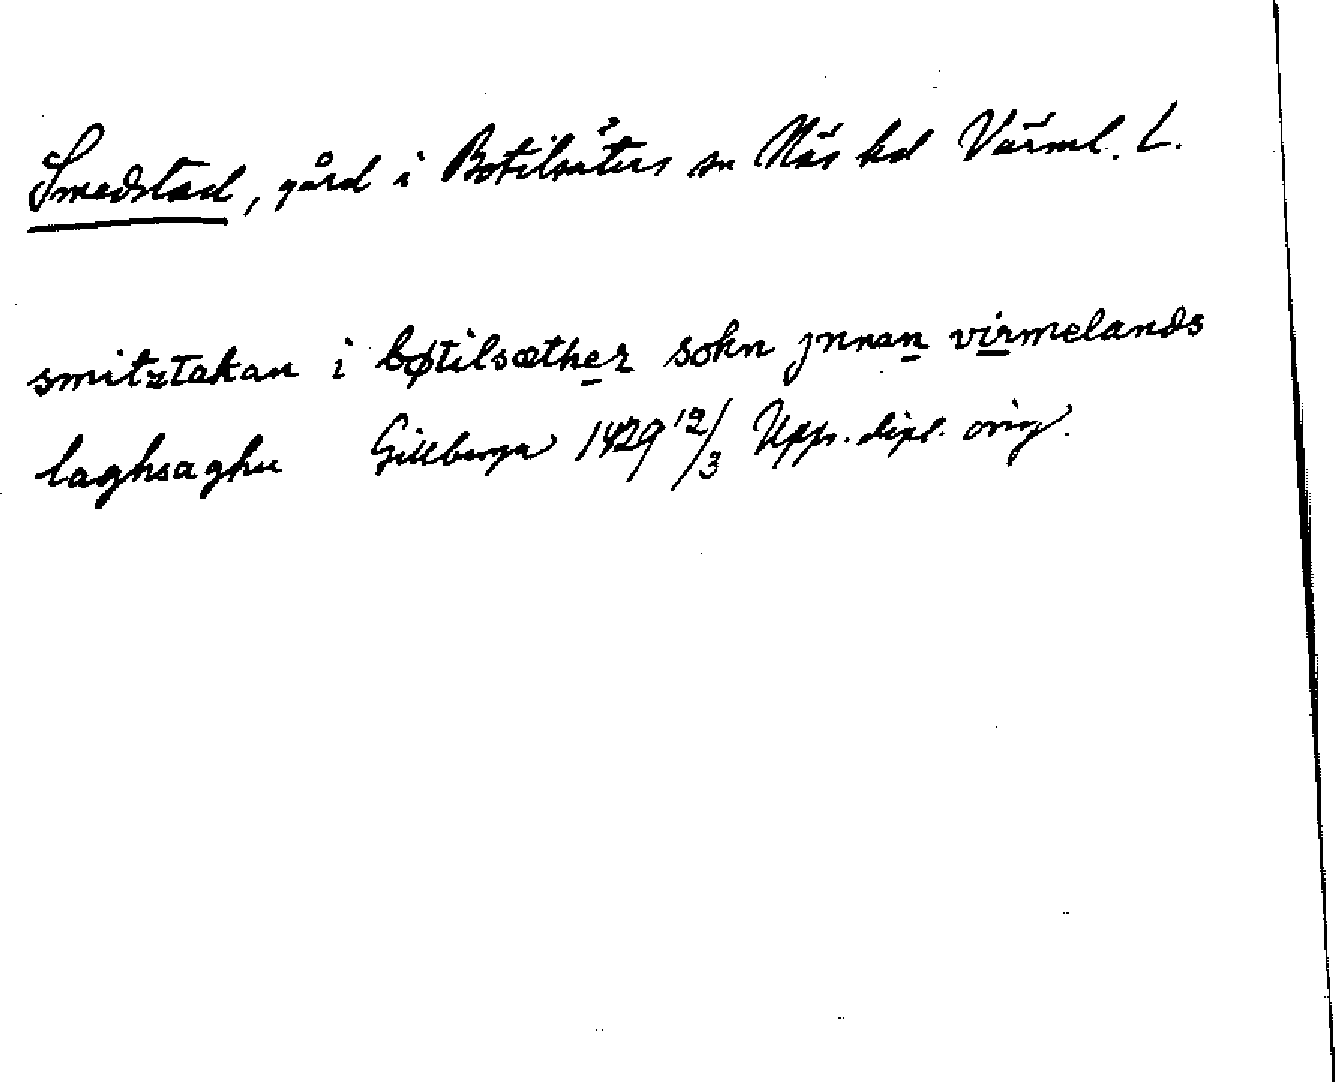 Smedstad, gård i Botilsäters sn Näs hd Värml. L.
smitztakan i bøtilsæther sokn jnnan virmelands
laghsaghu Gillberga 1429 12/3 Upps. dipl. orig.